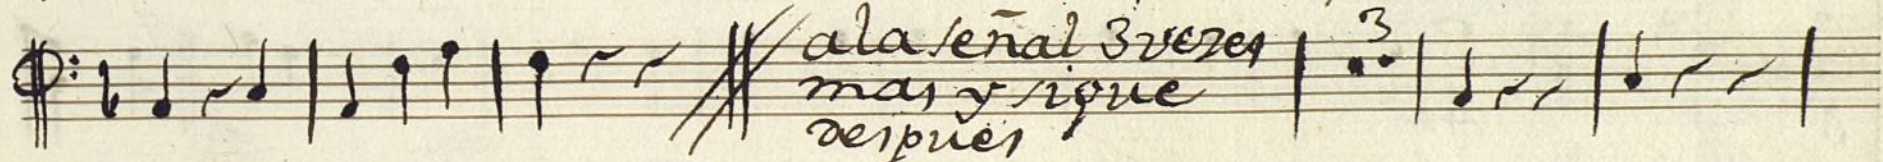 ala señal 3 vezes
mas y sigue
despues
3